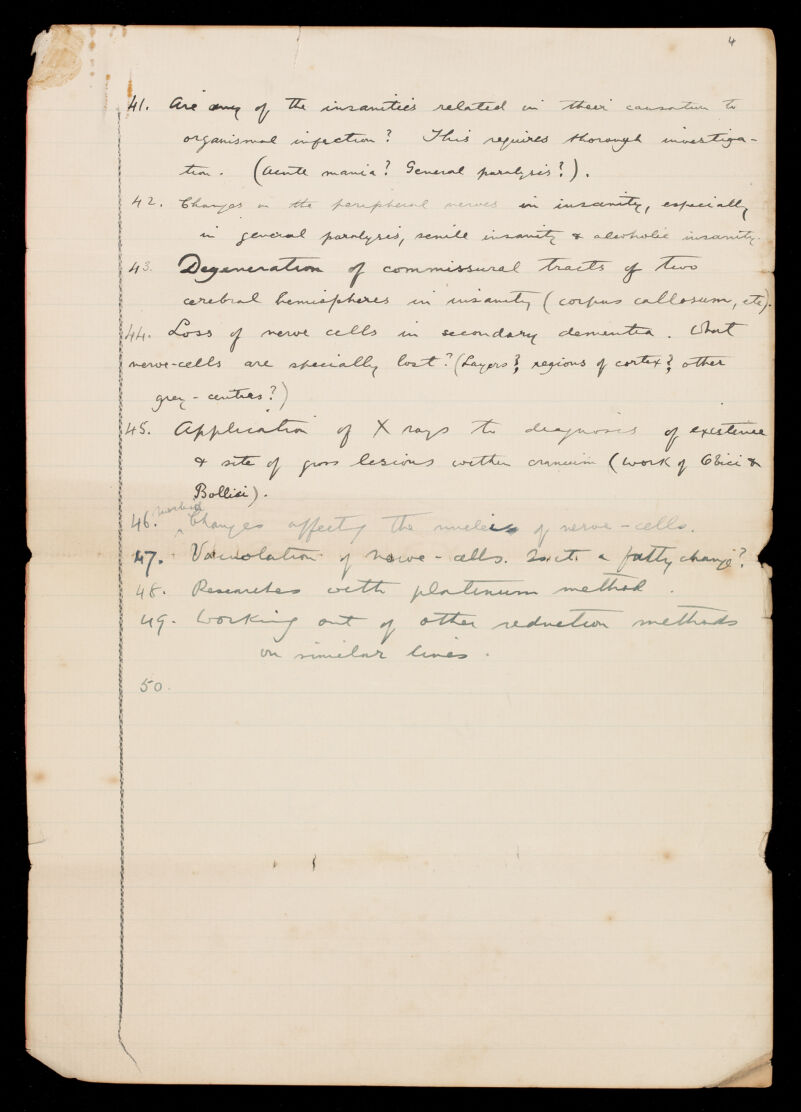 4
41. Are any of the insanities related in their causation to
organismal infection? This requires thorough investiga-
tion. (Acute mania? General paralysis?).
42. Changes in the peripheral nerves in insanity, especially
in general paralysis, senile insanity & alcoholic insanity.
43. Degeneration of commissural tracts of two
cerebral hemispheres in insanity (corpus callosum, etc).
44. Loss of nerve cells in secondary dementia. What
nerve-cells are specially lost? (Layers?, regions of cortex?, other
grey-centres?)
45. Application of X rays to diagnosis of existence
& site of gross lesions within cranium (work of Obici &
Bollici).
46. Morbid Changes affectg the nucleis of nerve-cells.
47. Vacuolation of nerve-cells. Is it a fatty change?
48. Researches with platinum method.
49. Working out of other reduction methods
on similar lines.
50.